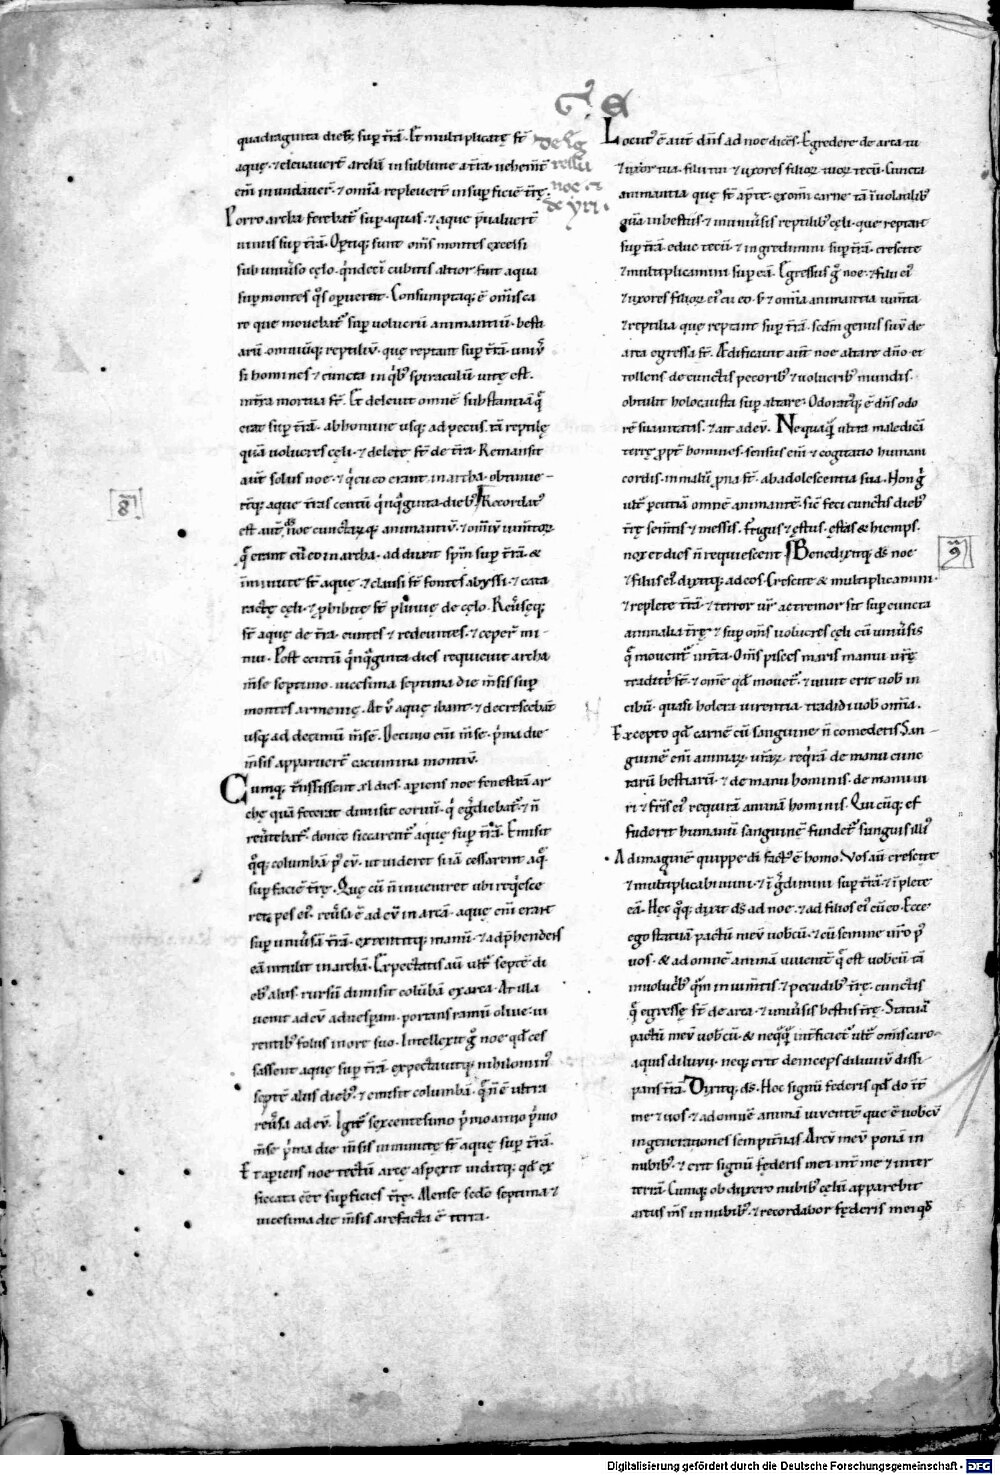 quadraginta dieb; sup̄ t̄rā. Et multiplicatę st̄
aquę. ⁊ elevauer̄t archā in sublime a t̄ra. uehem̄t
em̄ inundauer̄. ⁊ om̄ia repleuer̄t in sup̄ficiē t̄rę.
Porro archa ferebat᷑ sup̄ aquas. ⁊ aque p̄ualuer̄t
nimis sup̄ t̄rā. Optiq; sunt om̄s montes excelsi
sub uniu̓so cęlo. q̓ndeci cubitis altior fuit aqua
sup̄ montes q̊s operuerat. Consumptaq; ē om̄is ca
ro que mouebat᷑ sup̄ uolucrū animantiū. besti
arū. omniūq; reptiliū. quę reptant sup̄ t̄rā. uniu̓
si homines ⁊ cuncta in q̓b; spiraculū uitę est.
in t̄ra mortua st̄. Et deleuit omnē substantiā q̄
erat sup̄ t̄rā. ab homine usq; ad pecus. tā reptilę
quā uolucres cęli. ⁊ delete st̄ de t̄ra. Remansit
aūt solus noe. ⁊ q̓ cū eo erant in archa. obtinue-
r̄tq; aque t̄ras centū q̓nq̄ginta dieb; Recordat᷒
est aūt d̄s noe cunctarūq; animantiū. ⁊ om̄iū iumentoꝝ
q̄ erant cū eo in archa. adduxit sp̄m sup̄ t̄rā. &
īminute st̄ aquę. ⁊ clausi st̄ fontes abyssi. ⁊ cata
ractę cęli. ⁊ ꝓhibitę st̄ pluuię de cęlo. Reu̓sęq;
st̄ aquę de t̄ra. euntes ⁊ redeuntes. ⁊ ceper̄ mi-
nui. Post centū q̓nq̄ginta dies requieuit archa
m̄se septimo. uicesima septima die m̄sis sup̄
montes armenię. At u̓ aquę ibant ⁊ decrescebāt
usq; ad decimū m̄sē. Decimo em̄ m̄se. p̓ma die
m̄sis apparuer̄t cacumina montiū.
Cumq; t̄nsissent xl dies. apiens noe fenestrā ar
chę quā fecerat dimisit coruū. q̓ eg̓diebat᷑. ⁊ n̄
reu̓tebat᷑. donec siccarent᷑ aquę sup̄ t̄rā. Emisit
q̊q; columbā p᷒ eū. ut uideret si iā cessarent aq̄.
sup̄ faciē t̄rę. Quę cū n̄ inueniret ubi req̓esce
ret pes ei᷒. reu̓sa ē ad eū in arcā. aquę em̄ erant
sup̄ uniu̓sā t̄rā. extenditq; manū. ⁊ adp̄hendens
eā intulit in archā. Expectatis aū ult̄ septē di
eb᷒ aliis. rursū dimisit colūbā ex arca. At illa
uenit ad eū ad uesperam. portans ramū oliue. ui
rentib᷒ foliis in ore suo. Intellexit g̊ noe. qd̄ ces
sassent aque sup̄ t̄rā. expectauitq; nihilomin᷒
septē alios dieb᷒. ⁊ emisit columbā. q̄ n̄ ē ultra
reu̓sa ad eū. Igit᷑ sexcentesimo p̓mo anno p̓mo
m̄se p̓ma die m̄sis inminutę st̄ aquę sup̄ t̄rā.
Et apiens noe tectū arcę aspexit uiditq; qd̄ ex
siccata eēt sup̄ficies t̄rę. Mense scdo septima ⁊
uicesima die m̄sis arefacta ē terra.
de eg
ressu
noe ⁊
de yri.
Locut᷒ ē aūt dn̄s ad noe dicēs. Egredere de arca tu
⁊ uxor tua. filii tui ⁊ uxores filioꝝ tuoꝝ tecū. Cuncta
animantia quę st̄ ap̄ te. ex om̄i carne tā ī uolatilib᷒
quā in bestiis. ⁊ in uniu̓sis reptilib᷒ cęli. que reptant
sup̄ t̄rā. educ tecū. ⁊ ingredimini sup̄ t̄rā. crescite
⁊ multiplicamini sup̄ eā. Egressus g̊ noe. ⁊ filii ei᷒
⁊ uxores filioꝝ ei᷒ cū eo. s; ⁊ om̄ia animantia ium̄ta
⁊ reptilia quę reptant sup̄ t̄rā. scdm genus suū de
arca egressa st̄. Ædificauit aūt noe altare dn̄o. et
tollens de cunctis pecorib᷒ ⁊ uolucrib᷒ mundis.
obtulit holocausta sup̄ altare. Odoratusq; ē dn̄s odo
rē suauitatis. ⁊ ait ad eū. Nequaq̄ ultra maledicā
terrę ꝓpt̄ homines. sensus em̄ ⁊ cogitatio humani
cordis. in malū prona st̄. ab adolescentia sua. Non g̊
ult̄ pcutiā omnē animantē. sic̄ feci cunctis dieb᷒
t̄rę sem̄tis ⁊ messis. frigus ⁊ ęstus. ęstas & hiemps.
nox et dies n̄ requiescent Benedixitq; ds̄ noe
⁊ filiis ei᷒. dixitq; ad eos. Crescite & multiplicamini.
⁊ replete t̄rā. ⁊ terror ur̄ ac tremor sit sup̄ cuncta
animalia t̄rę. ⁊ sup̄ om̄s uolucres cęli cū uniu̓sis
q̄ mouent᷑ in t̄ra. Om̄s pisces maris manu ur̄ę
traditi st̄. ⁊ om̄e qd̄ mouet᷑. ⁊ uiuit erit uob̄ in
cibū. quasi holera uirentia tradidi uob̄ om̄ia.
Excepto qd̄ carnē cū sanguine n̄ comedetis. San-
guinē em̄ animaꝝ ur̄aꝝ req̓rā de manu cunc
tarū bestiarū. ⁊ de manu hominis. de manu ui
ri ⁊ fr̄is ei᷒ requirā animā hominis. Quicūq; ef
fuderit humanū sanguinē fundet᷑ sanguis illi᷒
Ad imaginē quippe di fact᷒ ē homo. Vos aū crescite
⁊ multiplicabimini. ⁊ ī g̓dimini sup̄ t̄rā. ⁊ īplete
eā. Hęc q̊q; dixit ds̄ ad noe. ⁊ ad filios ei᷒ cū eo. Ecce
ego statuā pactū meū uobcū. ⁊ cū semine ur̄o p᷒
uos. & ad omnē animā uiuentē q̄ est uobcū tā
in uolucrib᷒ q̄m in ium̄tis. ⁊ pecudib᷒ t̄rę. cunctis
q̄ egressę st̄ de arca. ⁊ uniu̓sis bestiis t̄rę. Statuā
pactū meū uobcū. & neq̄q̄ int̄ficiet᷑ ult̄ om̄is caro.
aquis diluuii. neq; erit deinceps diluuiū dissi-
pans t̄rā. Dixitq; ds̄. Hoc signū federis qd̄ do int̄
me ⁊ uos. ⁊ ad omnē animā uiuentē que ē uobcū
in generationes sempit̄nas. Arcū meū ponā in
nubib᷒. ⁊ erit signū fęderis mei int̄ me ⁊ inter
terrā. Cumq; obduxero nubib᷒ cęlū apparebit
arcus m̄s in nubib᷒. ⁊ recordabor fęderis mei qd̄
8
9
Digitalisierung gefördert durch die Deutsche Forschungsgemeinschaft - DFG